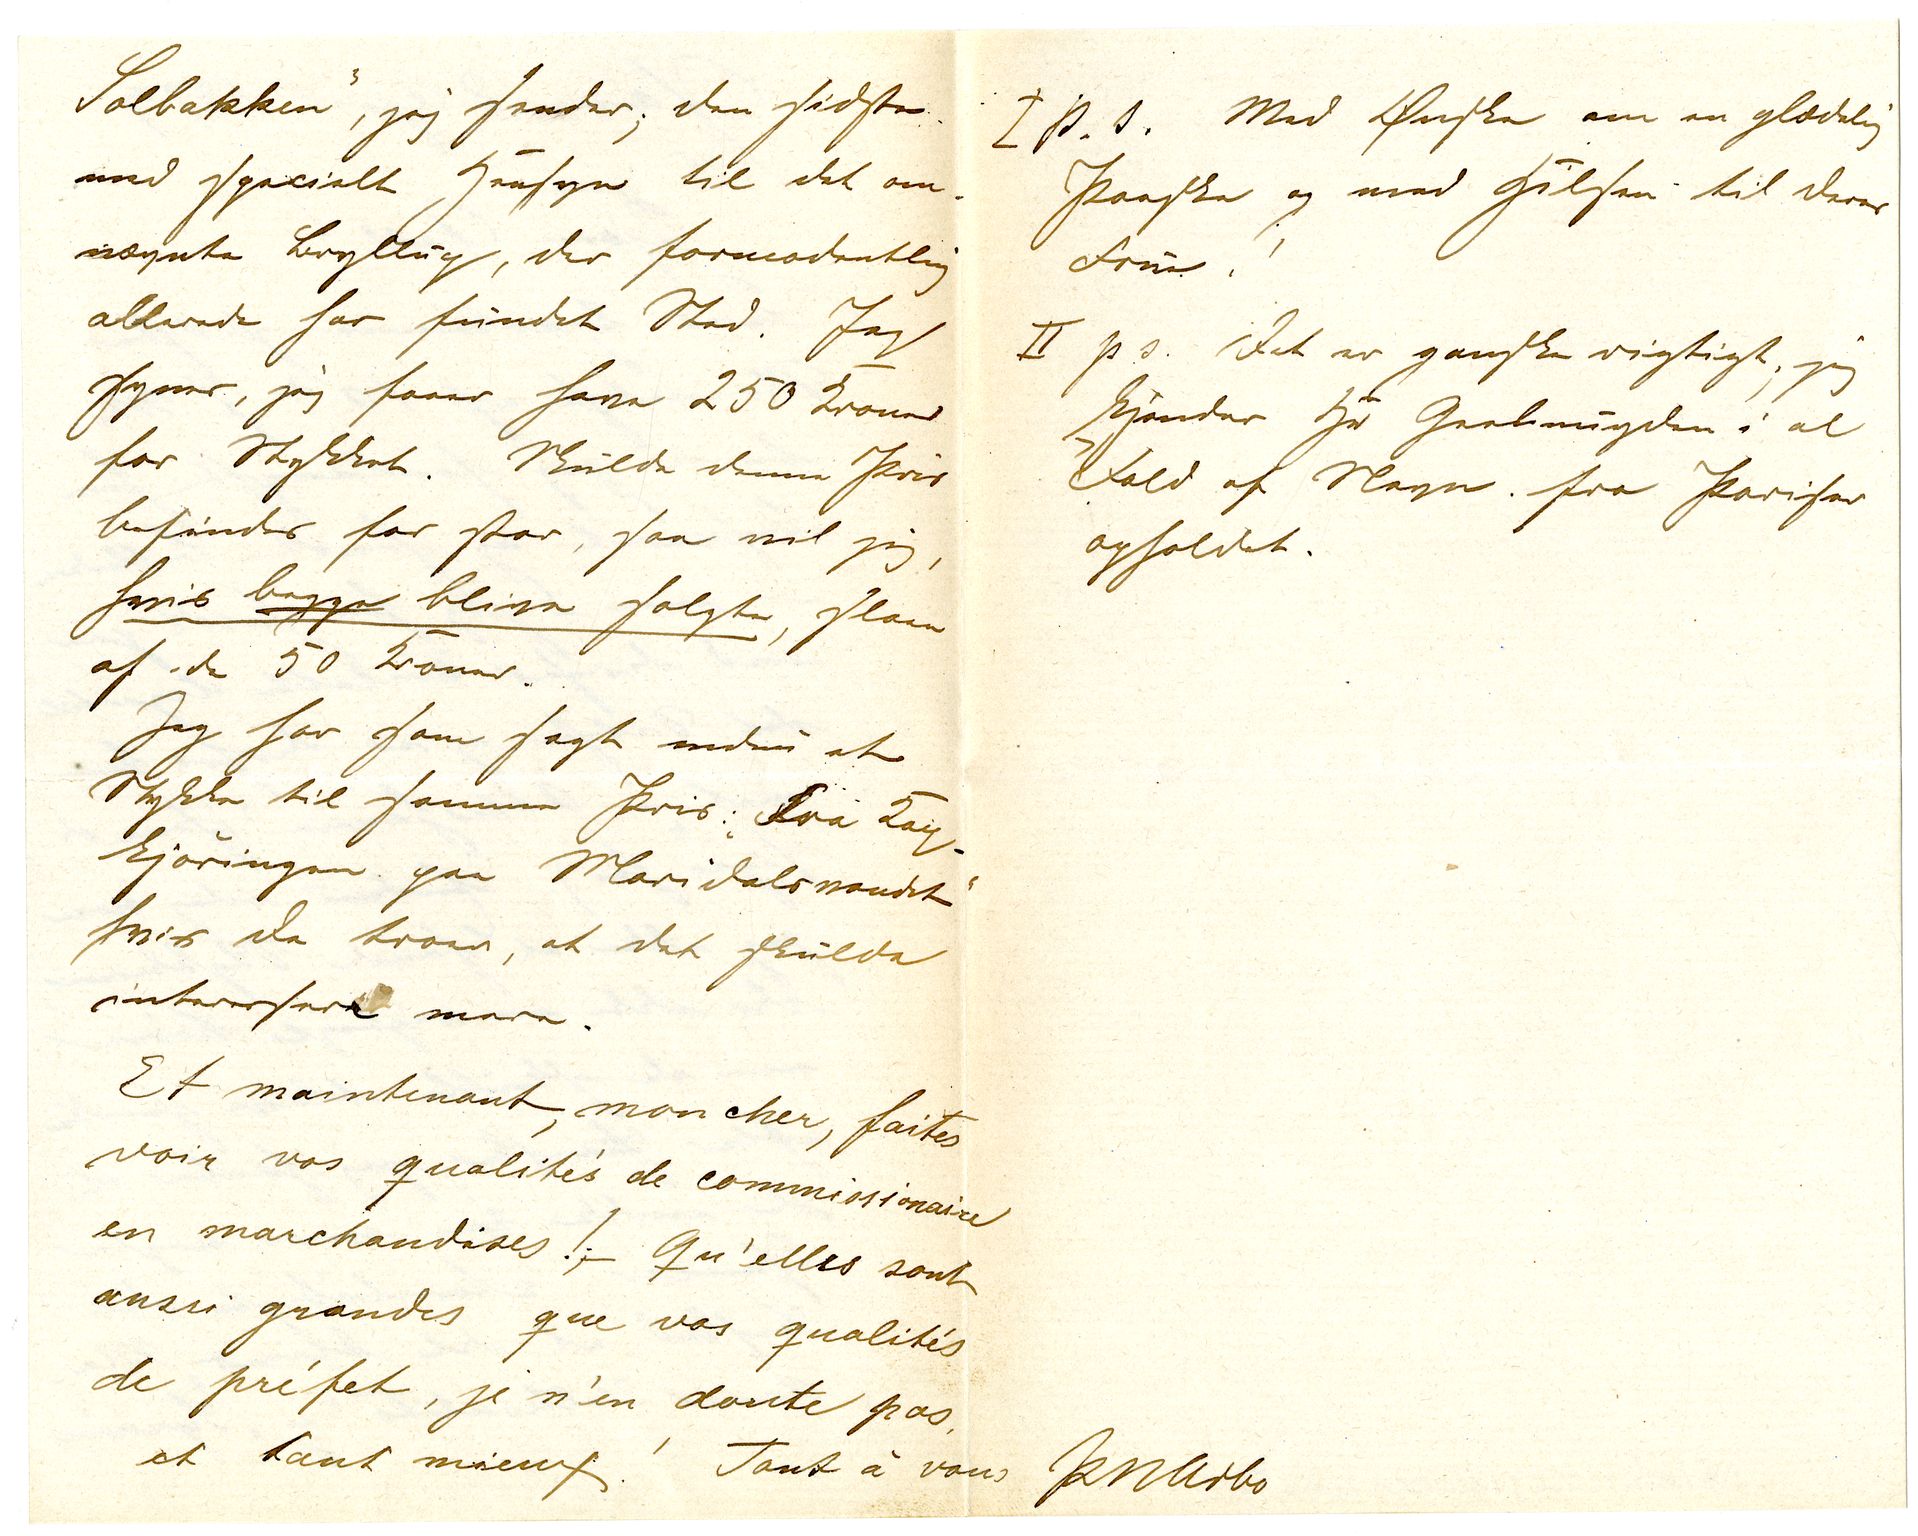 Solbakken", jeg sender; den sidste
med specielt Hensyn til det om-
nævnte Bryllup, der formodentlig
allerede har fundet Sted. Jeg
synes, jeg faaer have 250 Kroner
for Stykket. Skulde denne Pris
befindes for stor, saa vil jeg,
hvis begge blive solgte, slaae
af de 50 Kroner.
Jeg har som sagt endnu et
Stykke til samme Pris: „Fra Kap-
kjöringen paa Maridalsvandet"
hvis De troer, at det skulde
interessere mere.
Et maintenant, mon cher, faites
voir vos qualités de commissionaire
en marchandises! – Qu'elles sont
aussi grandes que vos qualités
de préfet, je n'en doute pas,
et tant mieux! Tout à vous
PNArbo
I p. s. Med Ønske om en glædelig
Paaske og med Hilsen til Deres
Frue!
II p s. Det er ganske rigtigt, jeg
kjender Hr Gaelmuyden i al
Fald af Navn fra Pariser
opholdet.